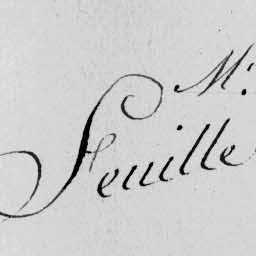 M:
Feuille